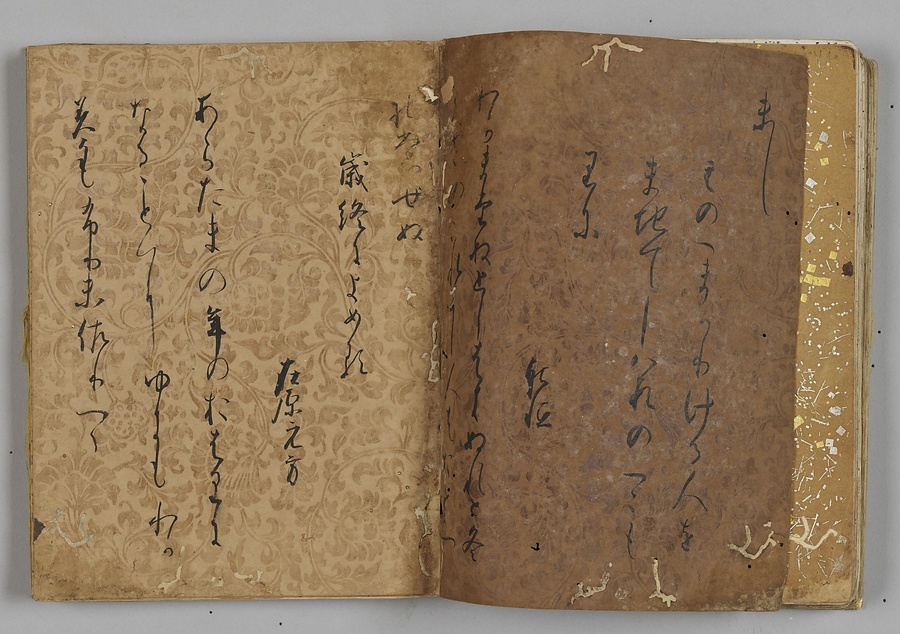 まし
ものへまかりける人を
ま地てしはすのつこも
りに
躬恒
わかまたぬとしはきぬれと冬
くさのかれにし人はおとつ
れもせぬ
歳終によめる
在原元方
あらたまの年のおはりに
なることにゆきもわか
美も布利末佐りつつ